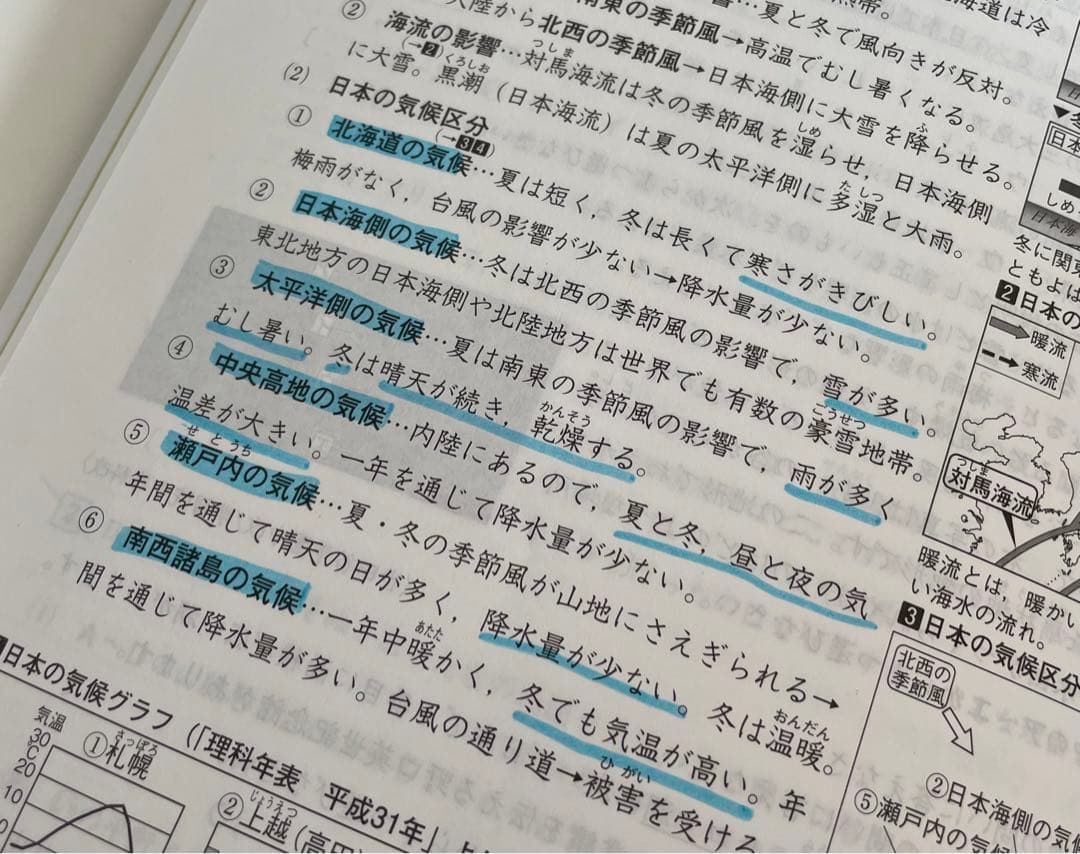 …夏と冬で風向きが反対。
南東の季節風→高温でむし暑くなる。
大陸から北西の季節風→日本海側に大雪を降らせる。
② 海流の影響…対馬海流は冬の季節風を湿らせ，日本海側
(→2)
に大雪。黒潮（日本海流）は夏の太平洋側に多湿と大雨。
(2) 日本の気候区分
(→3 4)
① 北海道の気候…夏は短く，冬は長くて寒さがきびしい。
梅雨がなく，台風の影響が少ない→降水量が少ない。
② 日本海側の気候…冬は北西の季節風の影響で，雪が多い。
東北地方の日本海側や北陸地方は世界でも有数の豪雪地帯。
③ 太平洋側の気候…夏は南東の季節風の影響で，雨が多く
むし暑い。冬は晴天が続き，乾燥する。
④ 中央高地の気候…内陸にあるので，夏と冬，昼と夜の気
温差が大きい。一年を通じて降水量が少ない。
⑤ 瀬戸内の気候…夏・冬の季節風が山地にさえぎられる→
年間を通じて晴天の日が多く，降水量が少ない。冬は温暖。
⑥ 南西諸島の気候…一年中暖かく，冬でも気温が高い。年
間を通じて降水量が多い。台風の通り道→被害を受ける
日本の気候グラフ（「理科年表 平成31年」
気温
30
℃
20
10
①札幌
②上越（高田）
しめ
冬に関東
ともよば
2 日本の
暖流
寒流
対馬海流
暖流とは，暖かい
い海水の流れ。
3 日本の気候区分
北西の
季節風
②日本海側の気候
⑤瀬戸内の気候